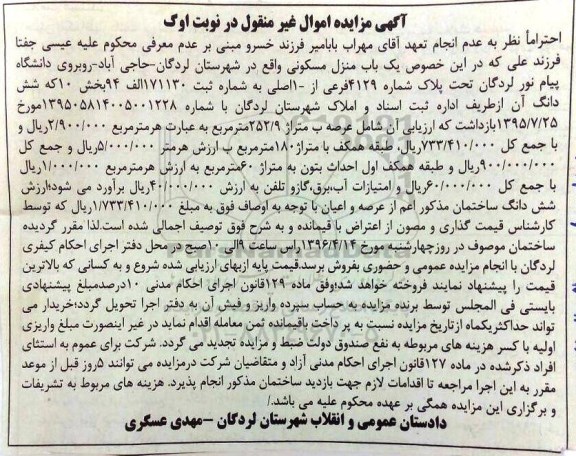 آگهی مزایده اموال غیر منقول در نوبت اول
احتراماً نظر به عدم انجام تعهد آقای مهراب بابامیر فرزند خسرو مبنی بر عدم معرفی محکوم علیه عیسی جفتا
فرزند علی که در این خصوص یک باب منزل مسکونی واقع در شهرستان لردگان-حاجی آباد-روبروی دانشگاه
پیام نور لردگان تحت پلاک شماره ۴۱۲۹فرعی از ۱-اصلی به شماره ثبت ۱۷۱۱۳۰الف ۹۴بخش ۱۰که شش
دانگ آن ازطریف اداره ثبت اسناد و املاک شهرستان لردگان با شماره ۱۳۹۵۰۵۸۱۴۰۰۵۰۰۱۲۲۸مورخ
۱۳۹۵/۷/۲۵بازداشت که ارزیابی آن شامل عرصه ب متراژ ۲۵۲/۹مترمربع به عبارت هرمترمربع ۲/۹۰۰/۰۰۰ریال و
با جمع کل ۷۳۳/۴۱۰/۰۰۰ریال، طبقه همکف با متراژ۱۸۰مترمربع ب ارزش هرمتر ۵/۰۰۰/۰۰۰ریال و جمع کل
۹۰۰/۰۰۰/۰۰۰ریال و طبقه همکف اول احداث بتون به متراژ ۶۰مترمربع به ارزش هرمترمربع ۱/۰۰۰/۰۰۰ریال
با جمع کل ۶۰/۰۰۰/۰۰۰ریال و امتیازات آب،برق،گازو تلفن به ارزش ۴۰/۰۰۰/۰۰۰ریال برآورد می شود؛ارزش
شش دانگ ساختمان مذکور اعم از عرصه و اعیان با توجه به اوصاف فوق به مبلغ ۱/۷۳۳/۴۱۰/۰۰۰ریال که توسط
کارشناس قیمت گذاری و مصون از اعتراض با قیمانده و به شرح فوق توصیف اجمالی شده است.لذا مقرر گردیده
ساختمان موصوف در روزچهارشنبه مورخ ۱۳۹۶/۴/۱۴راس ساعت ۹الی ۱۰صبح در محل دفتر اجرای احکام کیفری
لردگان با انجام مزایده عمومی و حضوری بفروش برسد.قیمت پایه ازبهای ارزیابی شده شروع و به کسانی که بالاترین
قیمت را پیشنهاد نمایند فروخته خواهد شد؛وفق ماده ۱۲۹قانون اجرای احکام مدنی ۱۰درصدمبلغ پیشنهادی
بایستی فی المجلس توسط برنده مزایده به حساب سپرده واریزو فیش آن به دفتر اجرا تحویل گردد؛خریدار می
تواند حداکثریکماه ازتاریخ مزایده نسبت به پر داخت باقیمانده ثمن معامله اقدام نماید در غیر اینصورت مبلغ واریزی
اولیه با کسر هزینه های مربوطه به نفع صندوق دولت ضبط و مزایده تجدید می گردد. شرکت برای عموم به استثای
افراد ذکرشده در ماده ۱۲۷قانون اجرای احکام مدنی آزاد و متقاضیان شرکت درمزایده می توانند ۵روز قبل از موعد
مقرر به این اجرا مراجعه تا اقدامات لازم جهت بازدید ساختمان مذکور انجام پذیرد. هزینه های مربوط به تشریفات
و برگزاری این مزایده همگی بر عهده محکوم علیه می باشد./
دادستان عمومی و انقلاب شهرستان لردگان –مهدی عسگری